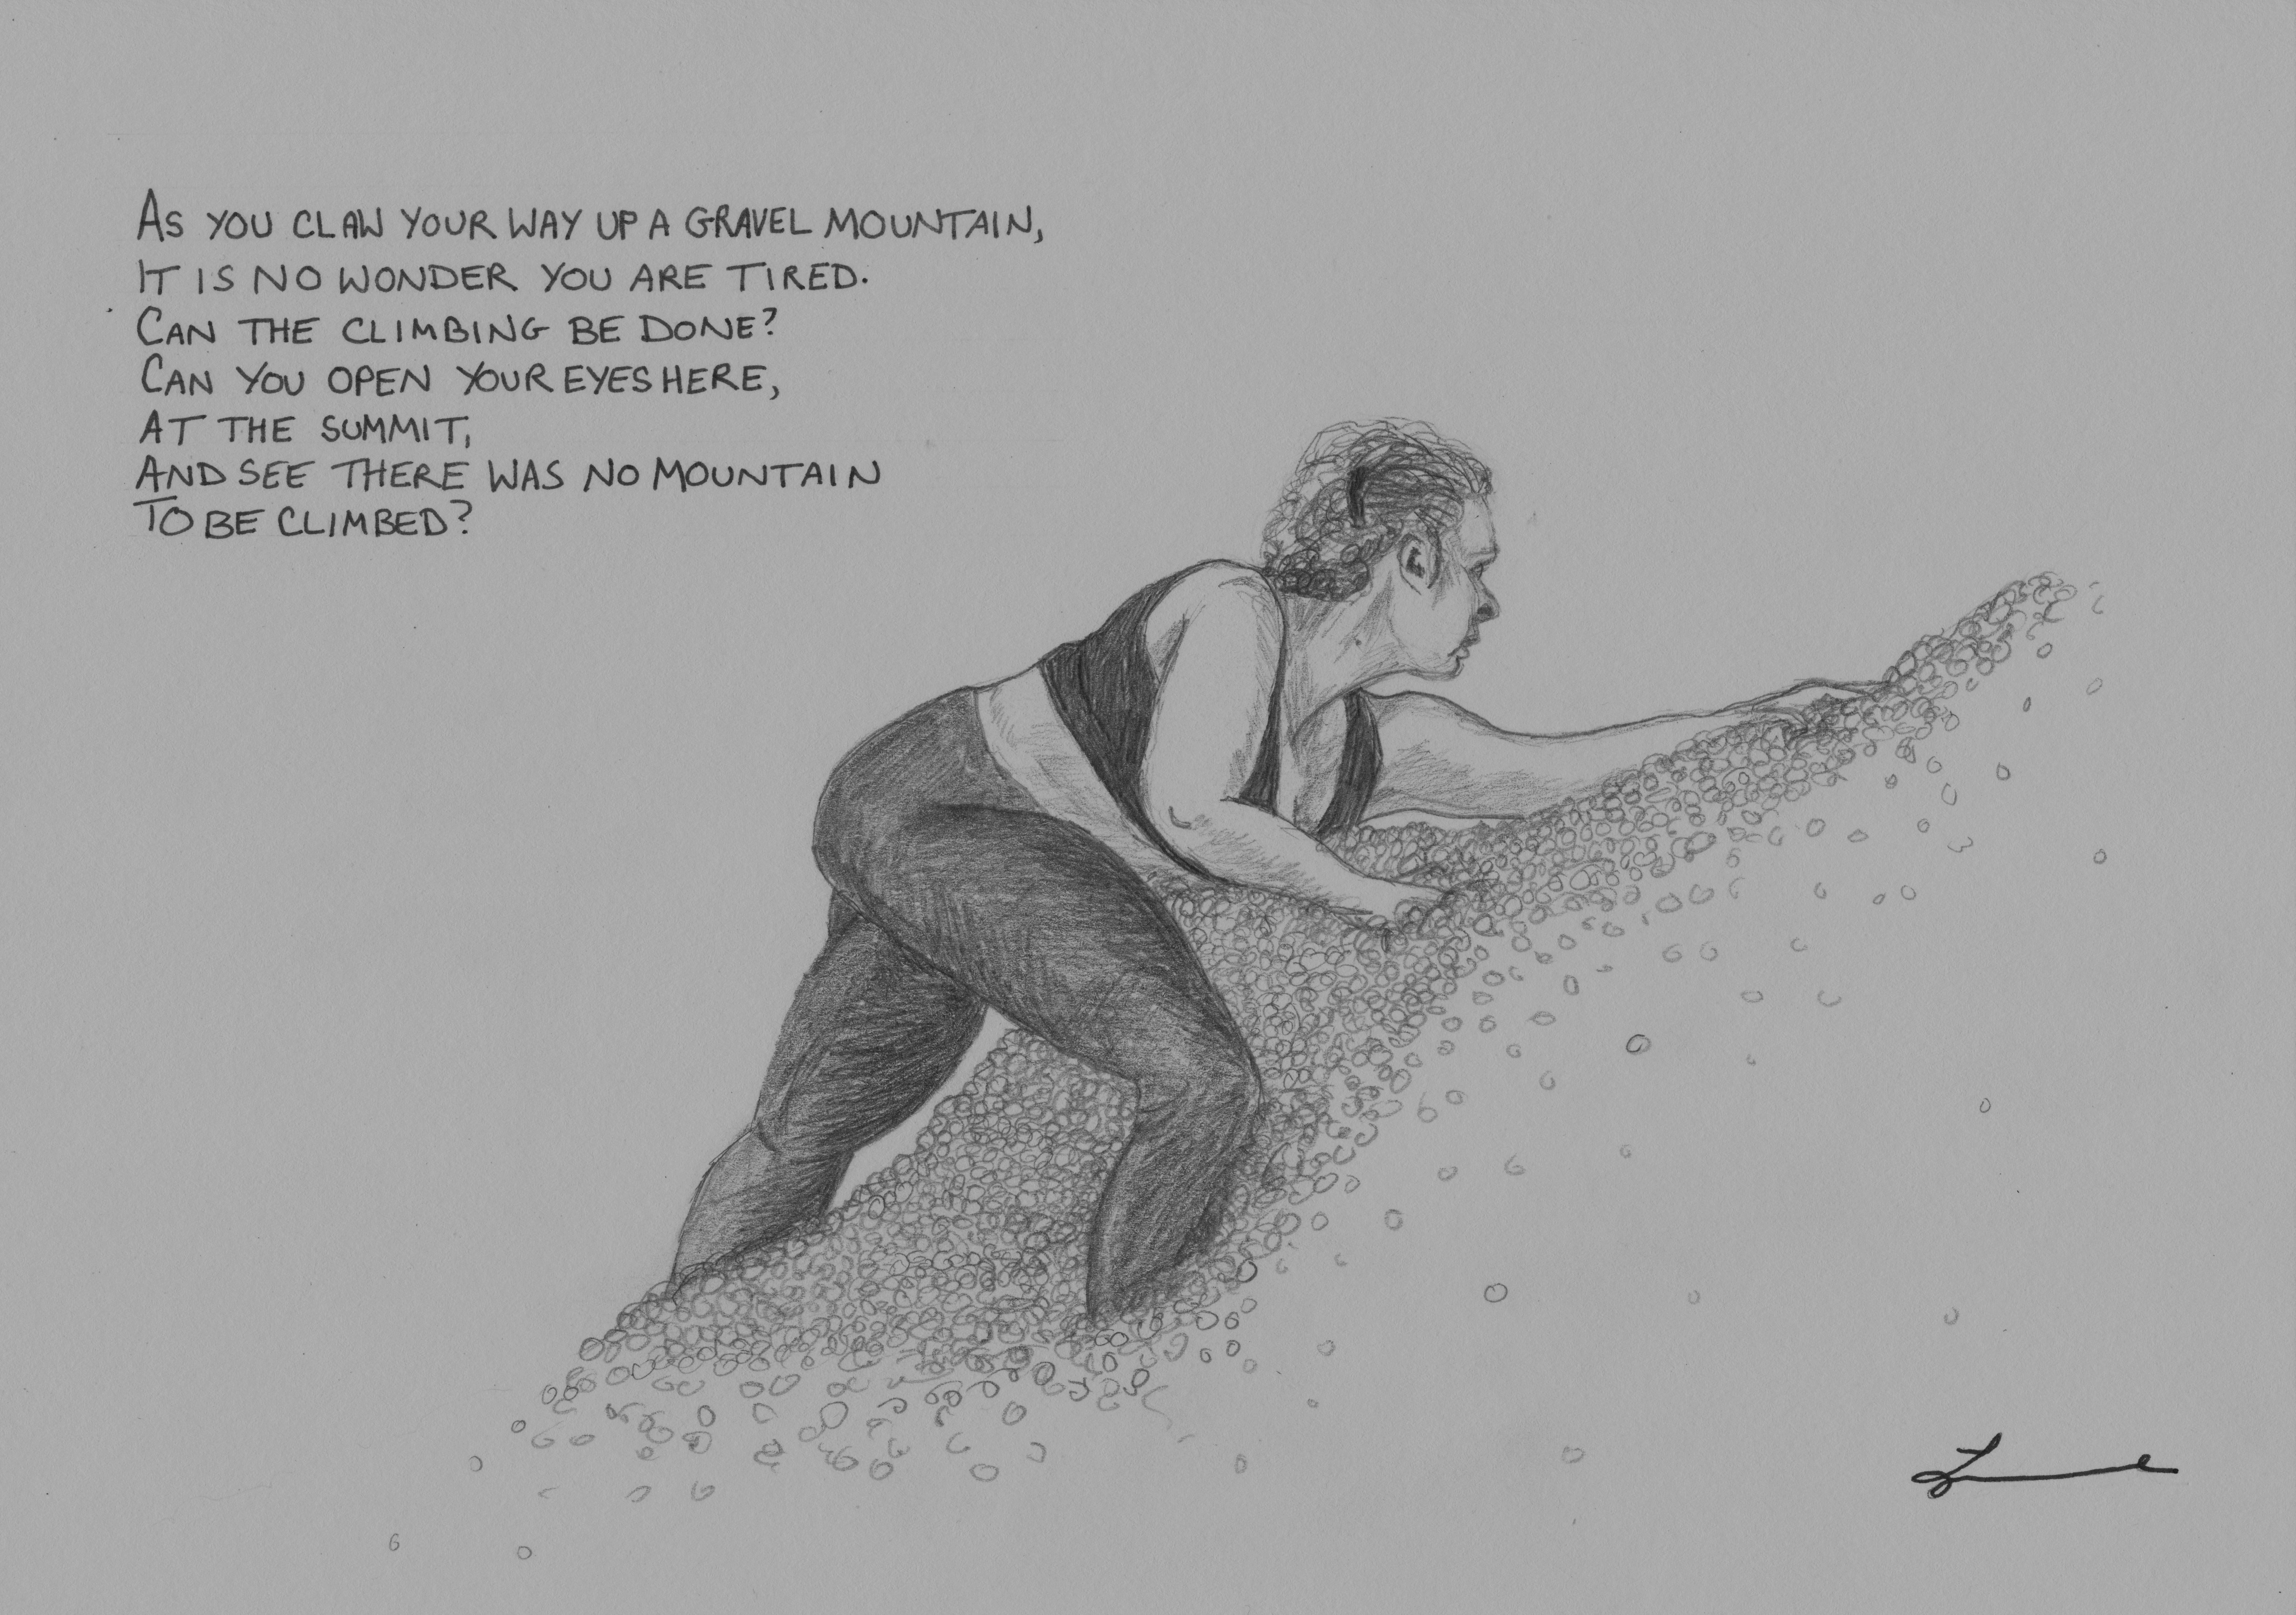 AS YOU CLAW YOUR WAY UP A GRAVEL MOUNTAIN,
IT IS NO WONDER YOU ARE TIRED.
CAN THE CLIMBING BE DONE?
CAN YOU OPEN YOUR EYES HERE,
AT THE SUMMIT,
AND SEE THERE WAS NO MOUNTAIN
TO BE CLIMBED?